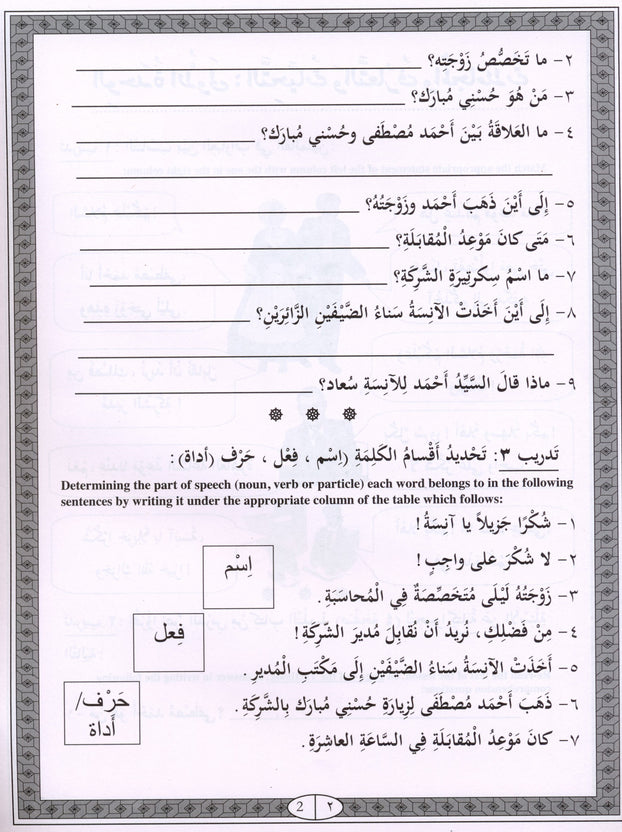 ٢- ما تَخَصُّصُ زَوْجَتِه؟
٣- مَنْ هُوَ حُسْنِي مُبارَك؟
٤- ما العَلاقَةُ بَيْنَ أَحْمَد مُصْطَفى وحُسْنِي مُبارَك؟
٥- إِلَى أَيْنَ ذَهَبَ أَحْمَد وزَوْجَتُهُ؟
٦- مَتَى كانَ مَوْعِدُ الْمُقابَلَةِ؟
٧- ما اسْمُ سِكرتِيرَةِ الشَّرِكَةِ؟
٨- إِلَى أَيْنَ أَخَذَتْ الآنِسَةُ سَناءُ الضَّيْفَيْنِ الزَّائِرَيْنِ؟
٩- ماذا قالَ السَّيِّدُ أَحْمَد لِلآنِسَةِ سُعاد؟
تَدريب ٣: تَحْديدُ أَقْسامُ الكَلِمَةِ (اِسْم ، فِعْل ، حَرْف (أداة):
Determining the part of speech (noun, verb or particle) each word belongs to in the following
sentences by writing it under the appropriate column of the table which follows:
١- شُكْرًا جَزيلاً يا آنِسَةُ!
٢- لا شُكْرَ على واجِبٍ!
اِسْم
٣- زَوْجَتُهُ لَيْلَى مُتَخَصِّصَةٌ فِي الْمُحاسَبَةِ.
٤- مِنْ فَضْلِكِ، نُريدُ أَنْ نُقابِلَ مُديرَ الشَّرِكَةِ!
فِعل
٥- أَخَذَتْ الآنِسَةُ سَناءُ الضَّيْفَيْنِ إِلَى مَكْتَبِ الْمُديرِ.
٦- ذَهَبَ أَحْمَد مُصْطَفَى لِزِيارَةِ حُسْنِي مُبارَك بِالشَّرِكَةِ.
حَرْف/
أَداة
٧- كانَ مَوْعِدُ الْمُقابَلَةِ فِي السَّاعَةِ العاشِرَةِ.
2 ٢